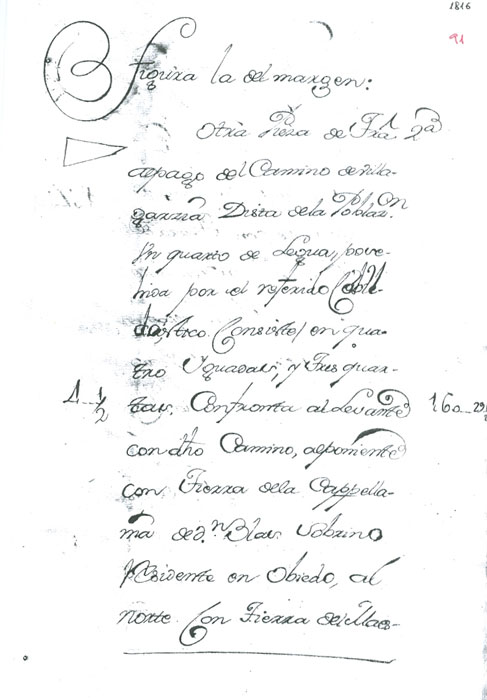 1816
91
figura la del margen:
Otra Pieza de Tra 2ª
al pago del Camino de villa-
garzia Dista de la Poblaz.on
Un quarto de Legua, pose-
hida por el referido
Consiste en qua-
tro Yguadas, y Tres quar-
1 1/2 tas. Confronta al Levante 160_29
con dho Camino, al poniente
con Tierra de la Cappella-
nia de d.n Blas Sobrino
Residente en Obiedo, al
norte Con Tierra del Maes-